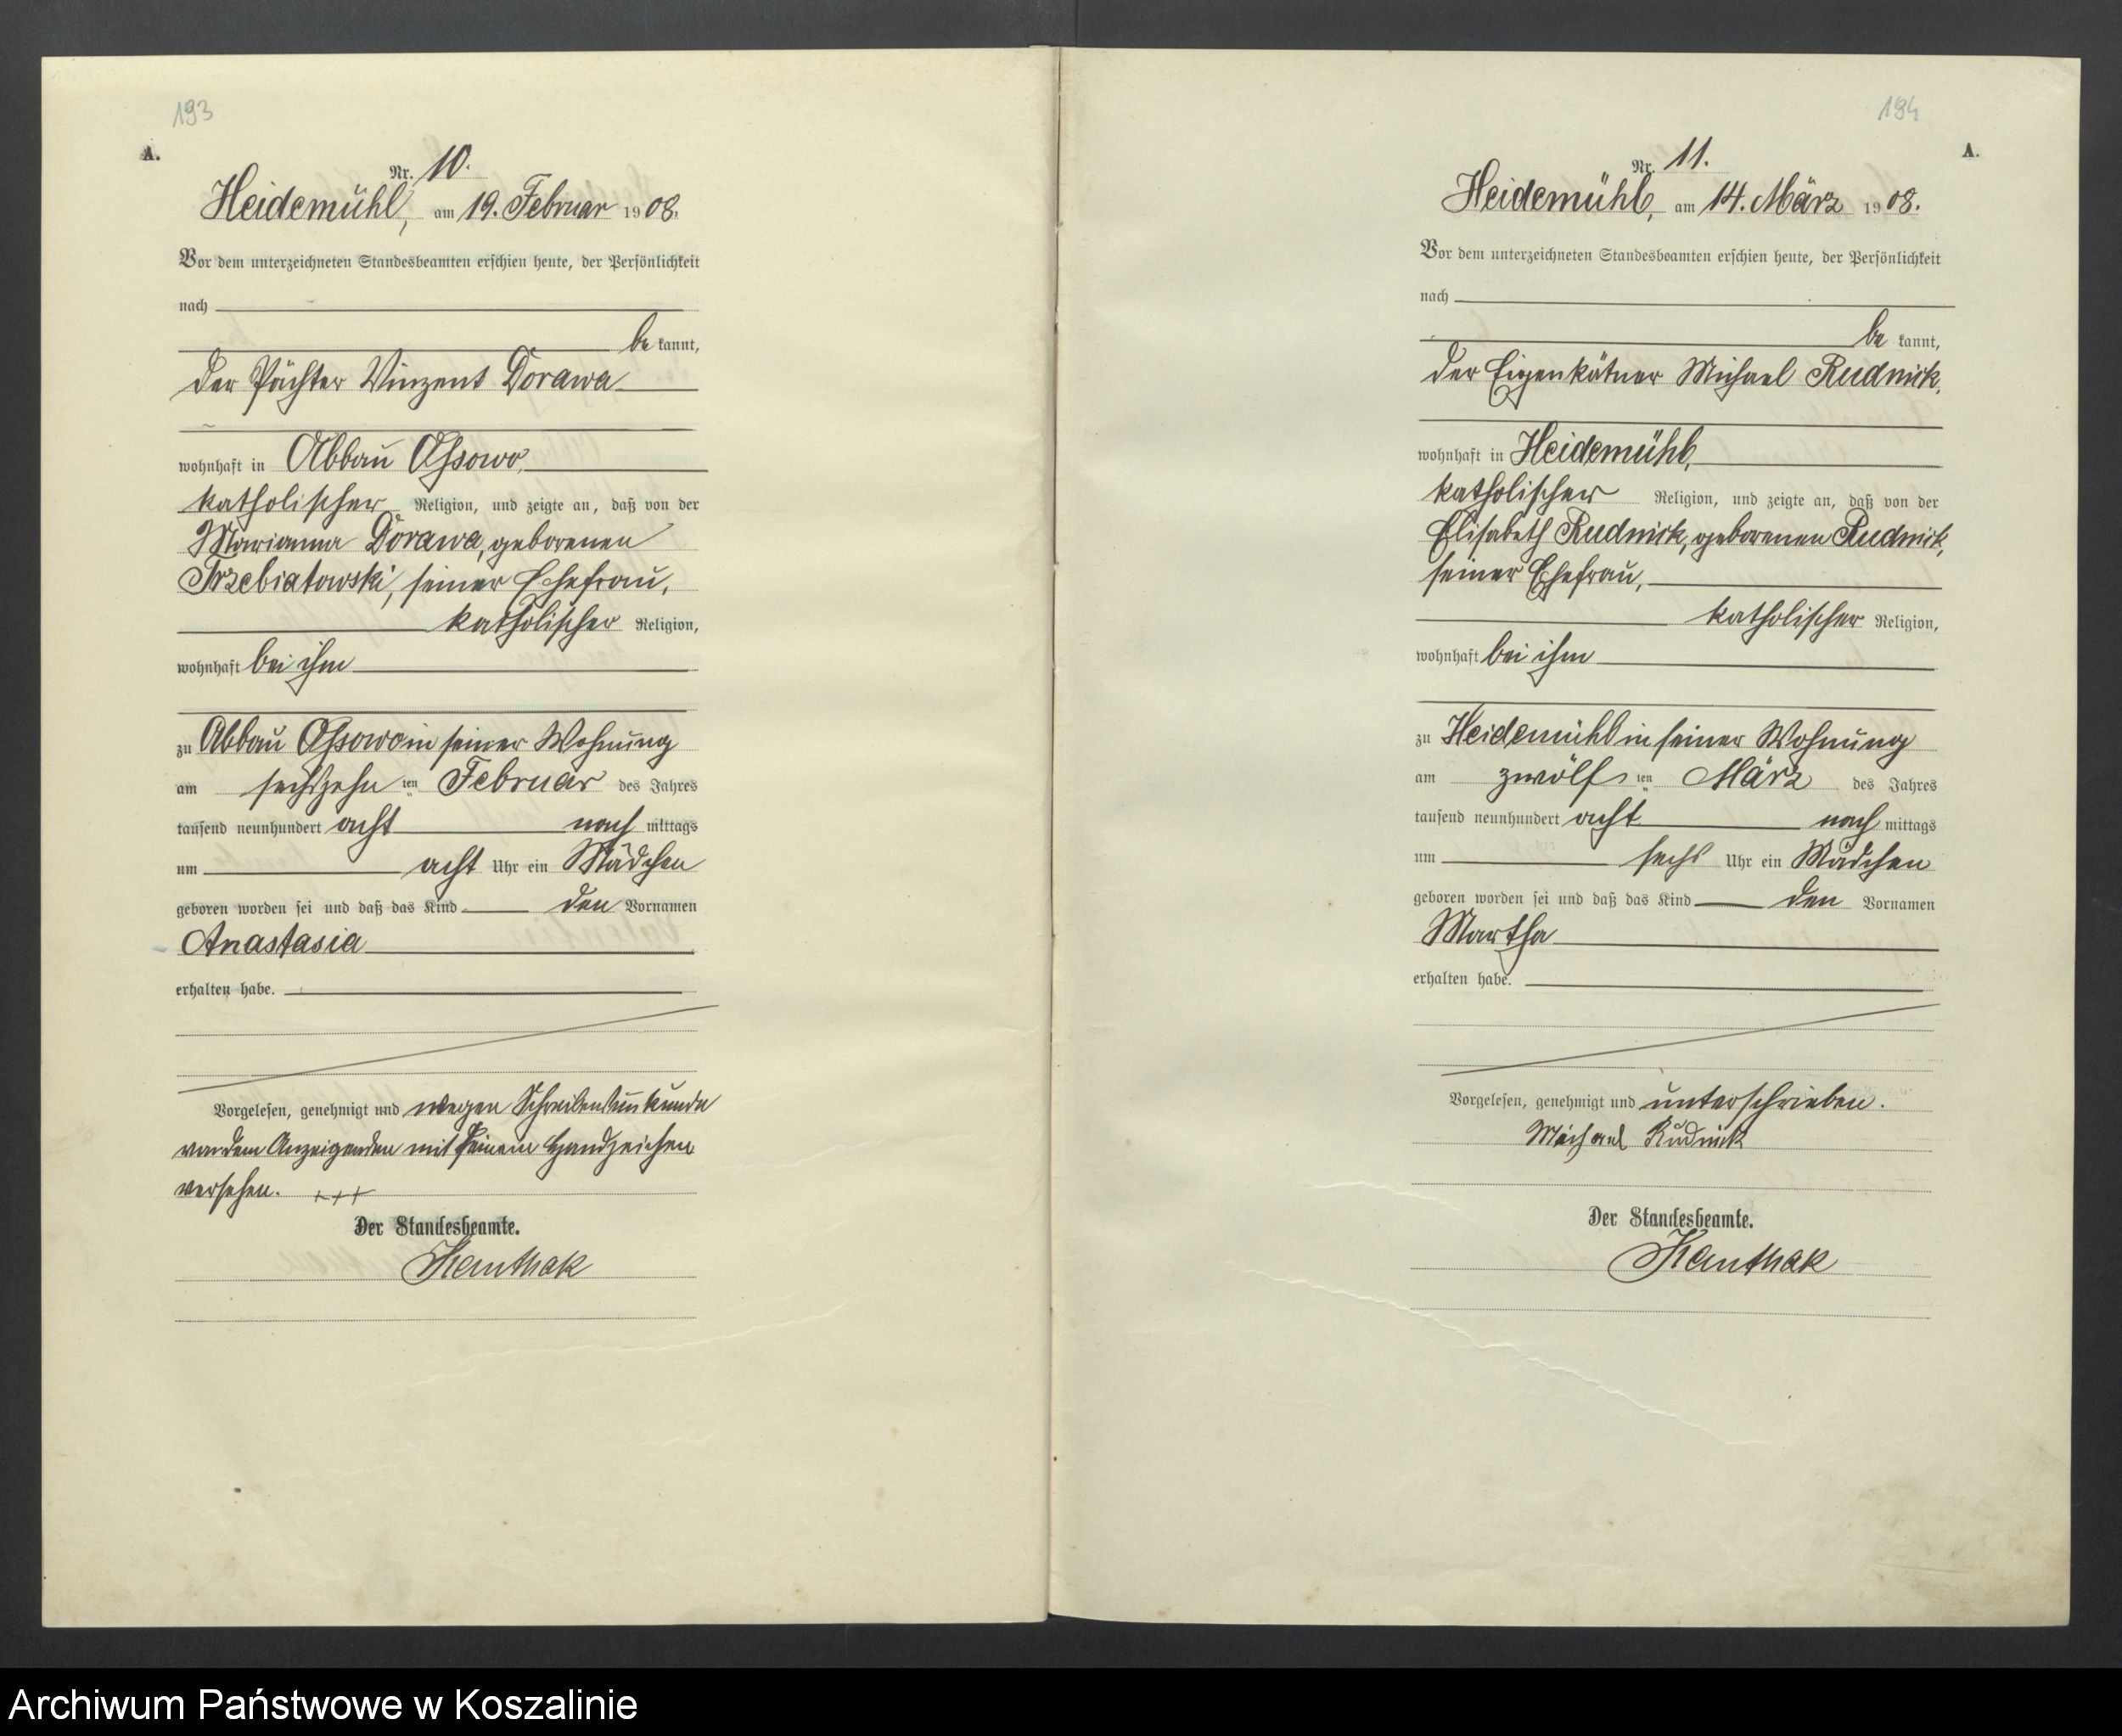 193
A.
Nr. 10.
Heidemühl, am 19. Februar 1908.
Vor dem unterzeichneten Standesbeamten erschien heute, der Persönlichkeit
nach
be kannt,
der Pächter Vinzent Dorawa
wohnhaft in Abbau Ossowo,
katholischer Religion, und zeigte an, daß von der
Marianna Dorawa, geborenen
Trzebiatowski, seiner Ehefrau,
katholischer Religion,
wohnhaft bei ihm
zu Abbau Ossowo in seiner Wohnung
am sechszehn ten Februar des Jahres
tausend neunhundert acht nach mittags
um acht Uhr ein Mädchen
geboren worden sei und daß das Kind den Vornamen
Anastasia
erhalten habe.
Vorgelesen, genehmigt und wegen Schreibensunkunde
von dem Anzeigenden mit seinem Handzeichen
versehen. +++
Der Standesbeamte.
Kanthak
194
A.
Nr. 11.
Heidemühl, am 14. März 1908.
Vor dem unterzeichneten Standesbeamten erschien heute, der Persönlichkeit
nach
be kannt,
der Eigenkätner Michael Rudnick,
wohnhaft in Heidemühl,
katholischer Religion, und zeigte an, daß von der
Elisabeth Rudnick, geborenen Rudnick,
seiner Ehefrau,
katholischer Religion,
wohnhaft bei ihm
zu Heidemühl in seiner Wohnung
am zwölf ten März des Jahres
tausend neunhundert acht nach mittags
um sechs Uhr ein Mädchen
geboren worden sei und daß das Kind den Vornamen
Martha
erhalten habe.
Vorgelesen, genehmigt und unterschrieben.
Michael Rudnick
Der Standesbeamte.
Kanthak
Archiwum Państwowe w Koszalinie